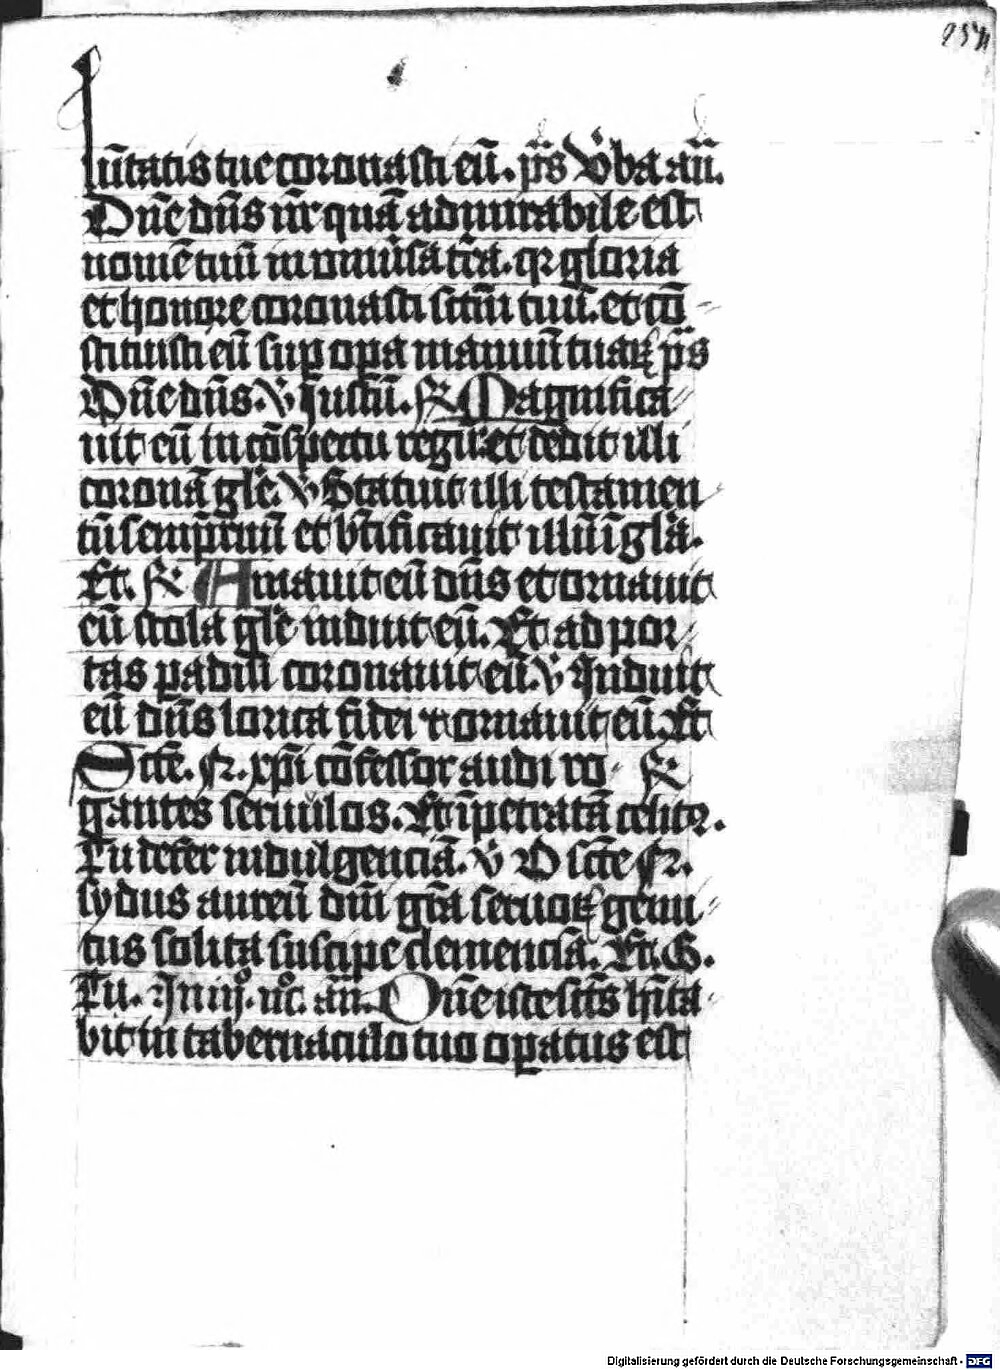 254
lūtatis tue coronasti eū. p̄s Vͥba aū.
Dn̄e dn̄s nr̄ quā admirabile est
nomē tuū in omīusa tr̄a. qꝛ gloria
et honore coronasti sctm̄ tuū. et cō-
stituisti eū suꝑ oꝑa manuū tuaꝝ p̄s
Dn̄e dn̄s. ℣ Justū. ℟ Magnifica-
uit eū in cōspectu regū. et dedit illi
coronā glē. ℣ Statuit illi testamen-
tū semp̄rnū et btīficauit illū ī glā.
Et. ℟ Amauit eū dn̄s et ornauit
eū stola glē induit eū. Et ad por-
tas padisi coronauit eū. ℣ Induit
eū dn̄s lorica fidei ⁊ ornauit eū. Et
Scte. fr. xp̄i cōfessor audi ro ℟
gantes seruulos. Et īpetratā celitꝰ.
Tu defer indulgenciā. ℣ O scte fr.
sydus aureū dm̄ grā seruoꝝ gemi-
tus solita suscipe clemencia. Et. G.
Tu. In iijº. nºc. an̄. Dn̄e iste sct̄s hīta-
bit in tabernaculo tuo oꝑatus est
Digitalisierung gefördert durch die Deutsche Forschungsgemeinschaft - DFG